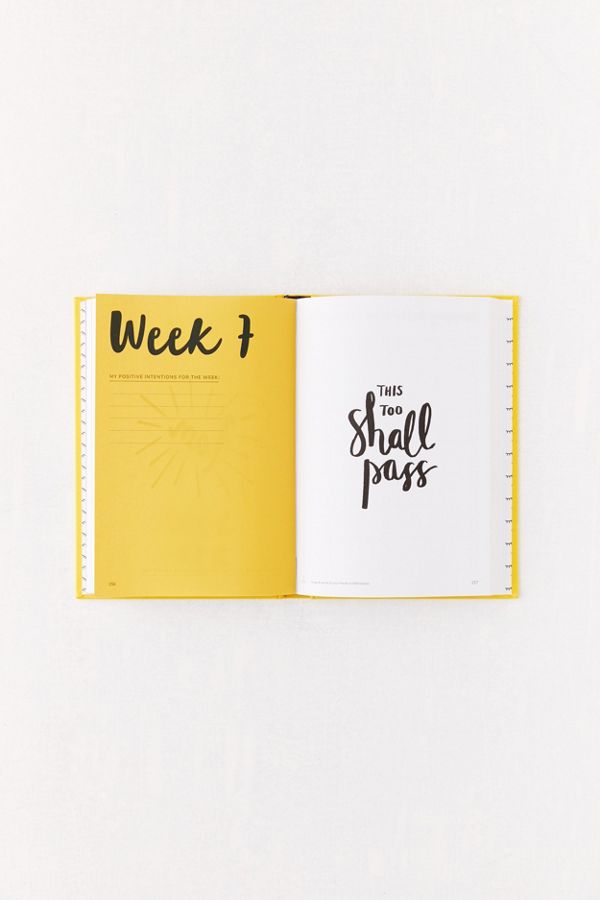 Week 7
MY POSITIVE INTENTIONS FOR THE WEEK:
THIS
TOO
Shall
pass
157